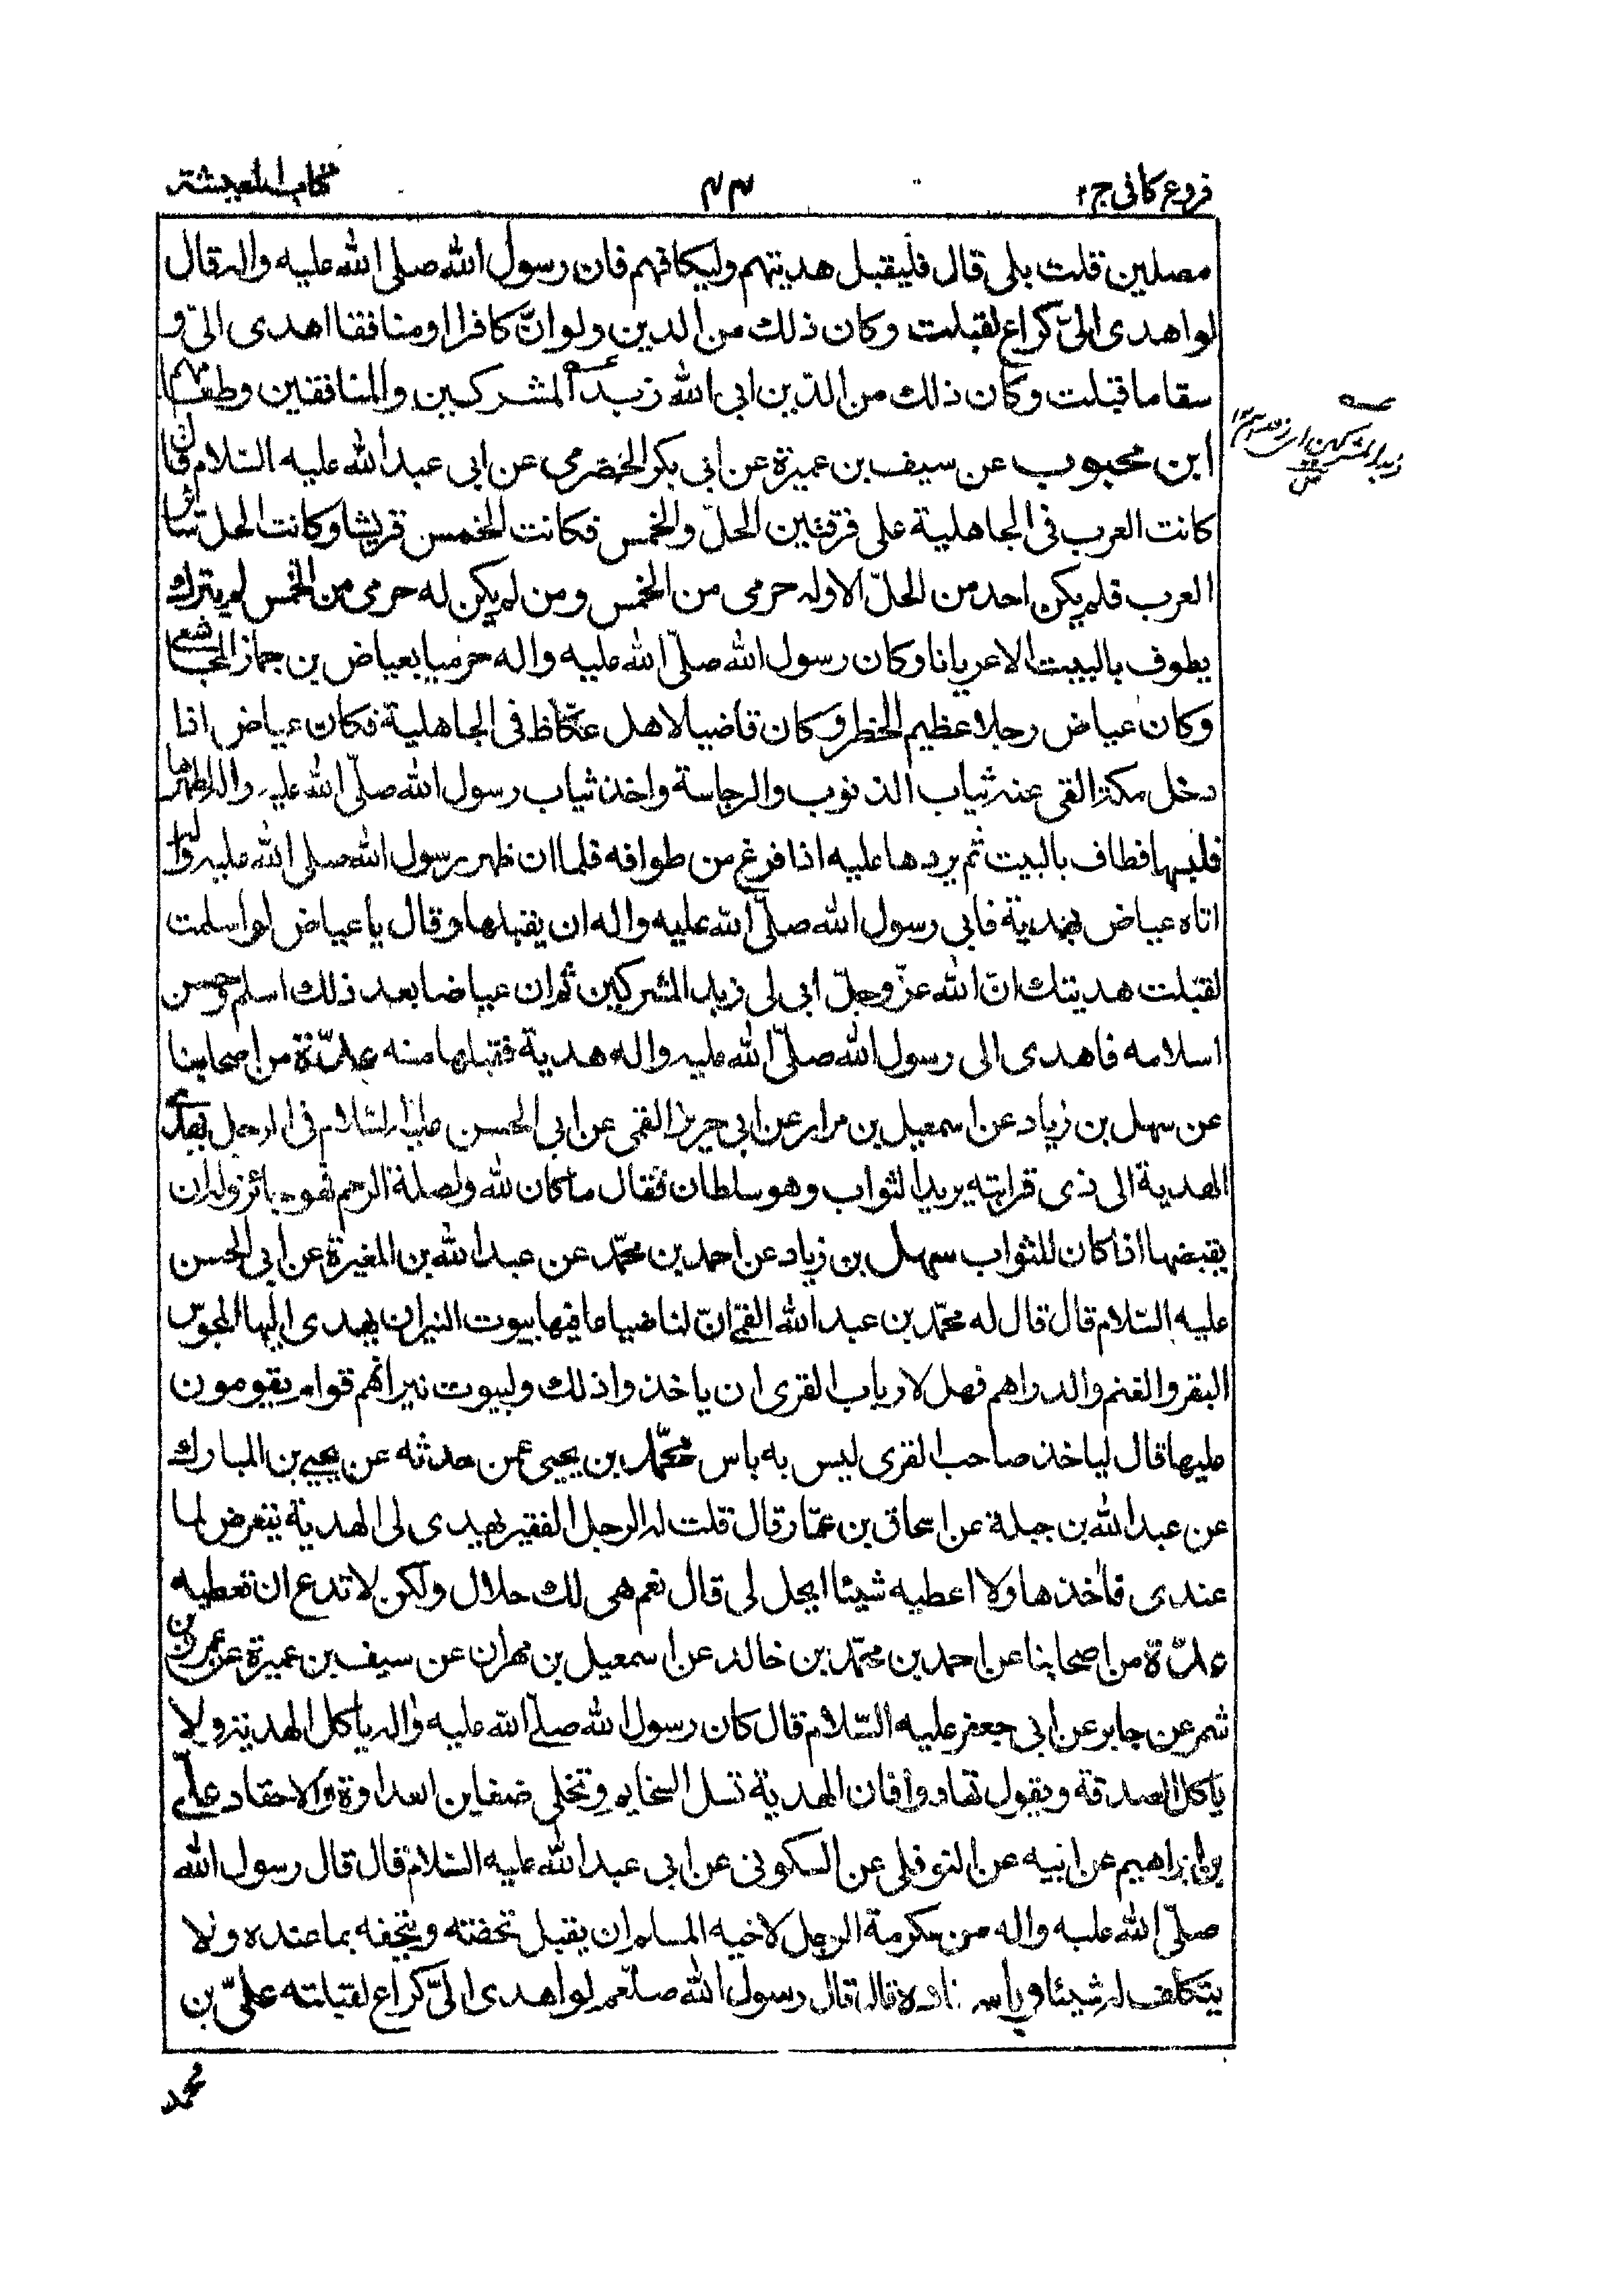 فروع كافى ج ٢
٤٣
كتاب المعيشة
مصلين قلت بلى قال فليقبل هديتهم وليكافهم فان رسول الله صلى الله عليه واله قال
لو اهدى الىّ كراع لقبلت وكان ذلك من الدين ولو انّ كافرا او منافقا اهدى الىّ و
سقا ما قبلت وكان ذلك من الدّين ابى الله زبد المشركين والمنافقين وطعامهم
ابن محبوب عن سيف بن عميرة عن ابى بكر الحضرمى عن ابى عبد الله عليه السّلام قال
كانت العرب فى الجاهلية على فرقتين الحلّ والخمس فكانت الخمس قريشا وكانت الحل سائر
العرب فلم يكن احد من الحلّ الا وله حرمى من الخمس ومن لم يكن له حرمى من الخمس لم يترك
يطوف بالبيت الا عريانا وكان رسول الله صلّى الله عليه واله حرميا بعياض بن حمار المجاشعى
وكان عياض رجلا عظيم الخطر وكان قاضيا لاهل عكاظ فى الجاهلية فكان عياض اذا
دخل مكة القى عنه ثياب الذنوب والرجاسة واخذ ثياب رسول الله صلّى الله عليه واله لطهرها
فلبسها فطاف بالبيت ثم يردها عليه اذا فرغ من طوافه فلما ان ظهر رسول الله صلى الله عليه واله
اتاه عياض بهدية فابى رسول الله صلّى الله عليه واله ان يقبلها وقال يا عياض لو اسلمت
لقبلت هديتك انّ الله عزّ وجلّ ابى لى زبد المشركين ثم ان عياضا بعد ذلك اسلم وحسن
اسلامه فاهدى الى رسول الله صلّى الله عليه واله هدية فقبلها منه عدّة من اصحابنا
عن سهل بن زياد عن اسمعيل بن مرار عن ابى جرير القمى عن ابى الحسن عليه السّلام فى الرجل يهدى
الهدية الى ذى قرابته يريد الثواب وهو سلطان فقال ما كان لله ولصلة الرحم فهو جائز وله ان
يقبضها اذا كان للثواب سهل بن زياد عن احمد بن محمّد عن عبد الله بن المغيرة عن ابى الحسن
عليه السّلام قال قال له محمّد بن عبد الله القمّى انّ لنا ضياعا فيها بيوت النيران يهدى اليها المجوس
البقر والغنم والدراهم فهل لارباب القرى ان ياخذوا ذلك ولبيوت نيرانهم قوام يقومون
عليها قال لياخذ صاحب القرى ليس به باس محمّد بن يحيى عمن حدثه عن يحيى بن المبارك
عن عبد الله بن جبلة عن اسحاق بن عمّار قال قلت له الرجل الفقير يهدى لى الهدية يتعرض لما
عندى فآخذها ولا اعطيه شيئا ايحل لى قال نعم هى لك حلال ولكن لا تدع ان تعطيه
عدّة من اصحابنا عن احمد بن محمّد بن خالد عن اسمعيل بن مهران عن سيف بن عميرة عن عمرو بن
شمر عن جابر عن ابى جعفر عليه السّلام قال كان رسول الله صلّى الله عليه واله ياكل الهدية ولا
ياكل الصدقة ويقول تهادوا فان الهدية تسل السخايم وتخلى ضغاين العداوة والاحقاد علىّ
بن ابراهيم عن ابيه عن النوفلى عن السكونى عن ابى عبد الله عليه السّلام قال قال رسول الله
صلّى الله عليه واله من تكرمة الرجل لاخيه المسلم ان يقبل تحفته ويتحفه بما عنده ولا
يتكلف له شيئا وباسناده قال قال رسول الله صلعم لو اهدى الىّ كراع لقبلته علىّ بن
محمد